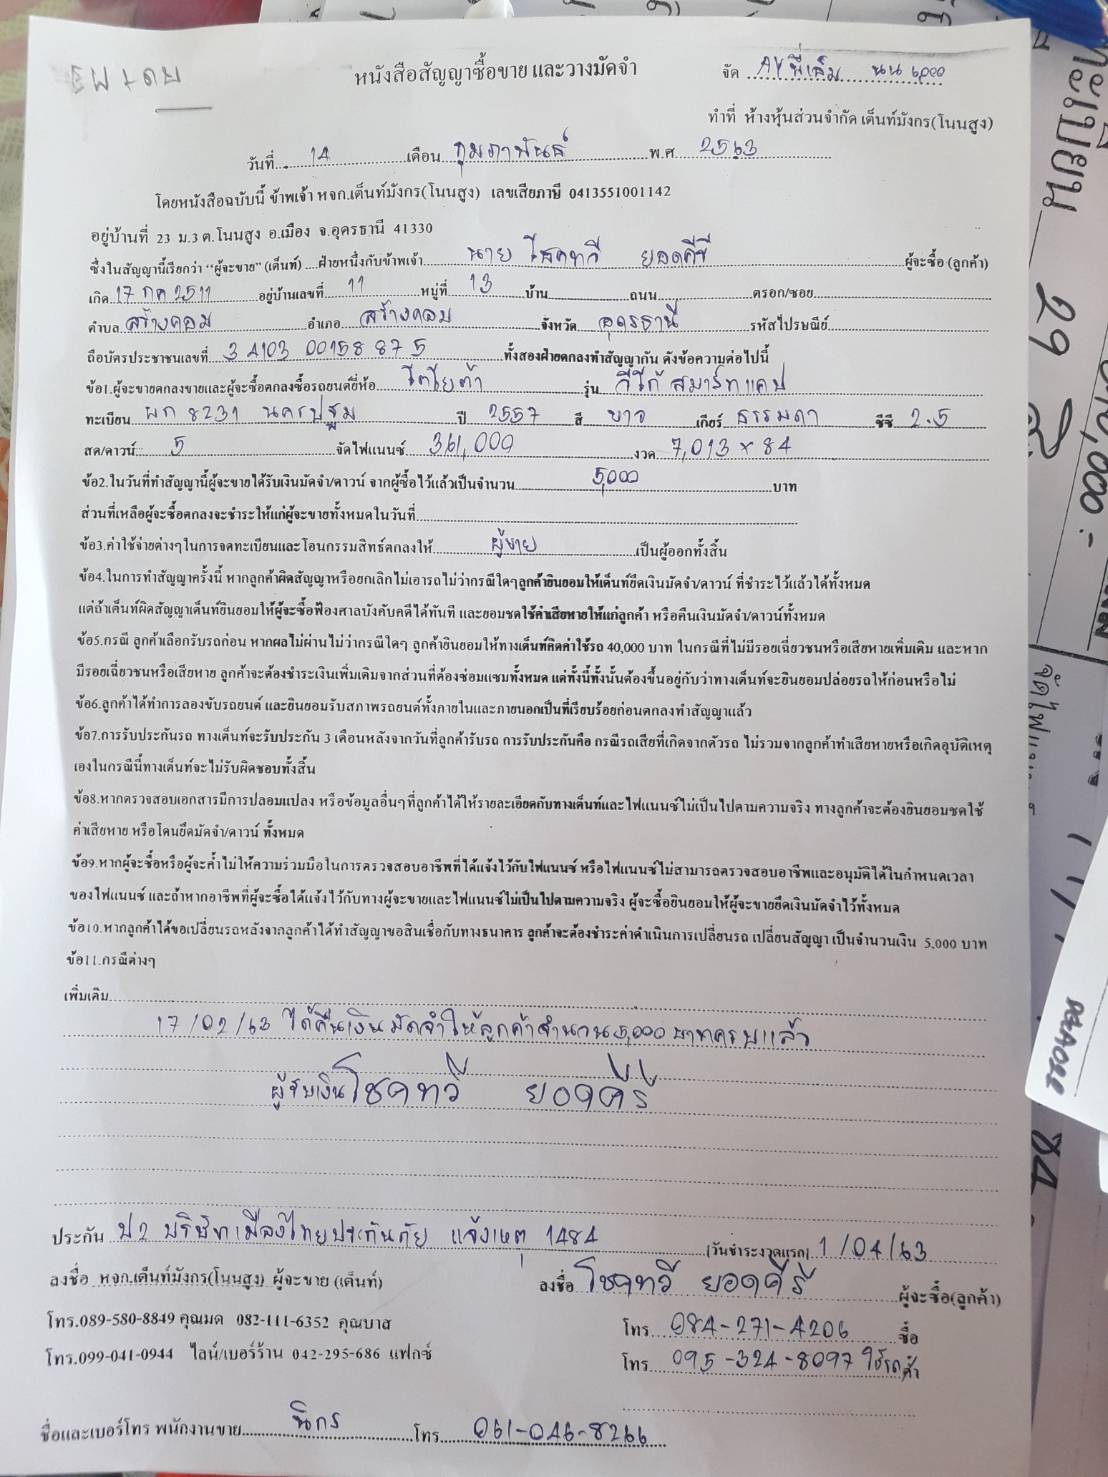 หนังสือสัญญาซื้อขาย และวางมัดจำ
จัด AY พี่เล็ม นน 6,000
ทำที่ ห้างหุ้นส่วนจำกัด เต็นท์มังกร(โนนสูง)
วันที่ 14 เดือน กุมภาพันธ์ พ.ศ 2563
โดยหนังสือฉบับนี้ ข้าพเจ้า หจก.เต็นท์มังกร(โนนสูง) เลขเสียภาษี 0413551001142
อยู่บ้านที่ 23 ม.3 ต.โนนสูง อ.เมือง จ.อุดรธานี 41330
ซึ่งในสัญญานี้เรียกว่า "ผู้จะขาย" (เต็นท์) ฝ่ายหนึ่งกับข้าพเจ้า นาย โชคทวี ยอดคีรี ผู้จะซื้อ (ลูกค้า)
เกิด 17 กค 2511 อยู่บ้านเลขที่ 11 หมู่ที่ 13 บ้าน ถนน ตรอก/ซอย
ตำบล สร้างคอม อำเภอ สร้างคอม จังหวัด อุดรธานี รหัสไปรษณีย์
ถือบัตรประชาชนเลขที่ 3 4103 00158 875 ทั้งสองฝ่ายตกลงทำสัญญากัน ดังข้อความต่อไปนี้
ข้อ1.ผู้จะขายตกลงขายและผู้จะซื้อตกลงซื้อรถยนต์ยี่ห้อ โตโยต้า รุ่น วีโก้ สมาร์ทแคป
ทะเบียน ผก 8231 นครปฐม ปี 2557 สี ขาว เกียร์ ธรรมดา ซีซี 2.5
สด/ดาวน์ 5 จัดไฟแนนซ์ 361,000 งวด 7,013 × 84
ข้อ2.ในวันที่ทำสัญญานี้ผู้จะขายได้รับเงินมัดจำ/ดาวน์ จากผู้ซื้อไว้แล้วเป็นจำนวน 5,000 บาท
ส่วนที่เหลือผู้จะซื้อตกลงจะชำระให้แก่ผู้จะขายทั้งหมดในวันที่
ข้อ3.ค่าใช้จ่ายต่างๆในการจดทะเบียนและโอนกรรมสิทธ์ตกลงให้ ผู้ขาย เป็นผู้ออกทั้งสิ้น
ข้อ4.ในการทำสัญญาครั้งนี้ หากลูกค้าผิดสัญญาหรือยกเลิกไม่เอารถไม่ว่ากรณีใดๆลูกค้ายินยอมให้เต็นท์ยึดเงินมัดจำ/ดาวน์ ที่ชำระไว้แล้วได้ทั้งหมด
แต่ถ้าเต็นท์ผิดสัญญาเต็นท์ยินยอมให้ผู้จะซื้อฟ้องศาลบังคับคดีได้ทันที และยอมชดใช้ค่าเสียหายให้แก่ลูกค้า หรือคืนเงินมัดจำ/ดาวน์ทั้งหมด
ข้อ5.กรณี ลูกค้าเลือกรับรถก่อน หากผลไม่ผ่านไม่ว่ากรณีใดๆ ลูกค้ายินยอมให้ทางเต็นท์คิดค่าใช้รถ 40,000 บาท ในกรณีที่ไม่มีรอยเฉี่ยวชนหรือเสียหายเพิ่มเติม และหาก
มีรอยเฉี่ยวชนหรือเสียหาย ลูกค้าจะต้องชำระเงินเพิ่มเติมจากส่วนที่ต้องซ่อมแซมทั้งหมด แต่ทั้งนี้ทั้งนั้นต้องขึ้นอยู่กับว่าทางเต็นท์จะยินยอมปล่อยรถให้ก่อนหรือไม่
ข้อ6.ลูกค้าได้ทำการลองขับรถยนต์ และยินยอมรับสภาพรถยนต์ทั้งภายในและภายนอกเป็นที่เรียบร้อยก่อนตกลงทำสัญญาแล้ว
ข้อ7.การรับประกันรถ ทางเต็นท์จะรับประกัน 3 เดือนหลังจากวันที่ลูกค้ารับรถ การรับประกันคือ กรณีรถเสียที่เกิดจากตัวรถ ไม่รวมจากลูกค้าทำเสียหายหรือเกิดอุบัติเหตุ
เองในกรณีนี้ทางเต็นท์จะไม่รับผิดชอบทั้งสิ้น
ข้อ8.หากตรวจสอบเอกสารมีการปลอมแปลง หรือข้อมูลอื่นๆที่ลูกค้าได้ให้รายละเอียดกับทางเต็นท์และไฟแนนซ์ไม่เป็นไปตามความจริง ทางลูกค้าจะต้องยินยอมชดใช้
ค่าเสียหาย หรือโดนยึดมัดจำ/ดาวน์ ทั้งหมด
ข้อ9.หากผู้จะซื้อหรือผู้จะค้ำไม่ให้ความร่วมมือในการตรวจสอบอาชีพที่ได้แจ้งไว้กับไฟแนนซ์ หรือไฟแนนซ์ไม่สามารถตรวจสอบอาชีพและอนุมัติได้ในกำหนดเวลา
ของไฟแนนซ์ และถ้าหากอาชีพที่ผู้จะซื้อได้แจ้งไว้กับทางผู้จะขายและไฟแนนซ์ไม่เป็นไปตามความจริง ผู้จะซื้อยินยอมให้ผู้จะขายยึดเงินมัดจำไว้ทั้งหมด
ข้อ10.หากลูกค้าได้ขอเปลี่ยนรถหลังจากลูกค้าได้ทำสัญญาขอสินเชื่อกับทางธนาคาร ลูกค้าจะต้องชำระค่าดำเนินการเปลี่ยนรถ เปลี่ยนสัญญา เป็นจำนวนเงิน 5,000 บาท
ข้อ11.กรณีต่างๆ
เพิ่มเติม
17/02/63 ได้คืนเงินมัดจำให้ลูกค้าจำนวน 5,000 บาทครบแล้ว
ผู้รับเงิน โชคทวี ยอดคีรี
ประกัน ป2 บริษัท เมืองไทยประกันภัย แจ้งเหตุ 1484 (วันชำระงวดแรก) 1/04/63
ลงชื่อ หจก.เต็นท์มังกร(โนนสูง) ผู้จะขาย (เต็นท์) ลงชื่อ โชคทวี ยอดคีรี ผู้จะซื้อ(ลูกค้า)
โทร.089-580-8849 คุณมด 082-111-6352 คุณบาส โทร 084-271-4206 ซื้อ
โทร.099-041-0944 ไลน์/เบอร์ร้าน 042-295-686 แฟกซ์ โทร 095-324-8097
ชื่อและเบอร์โทร พนักงานขาย นิกร โทร 061-046-8266